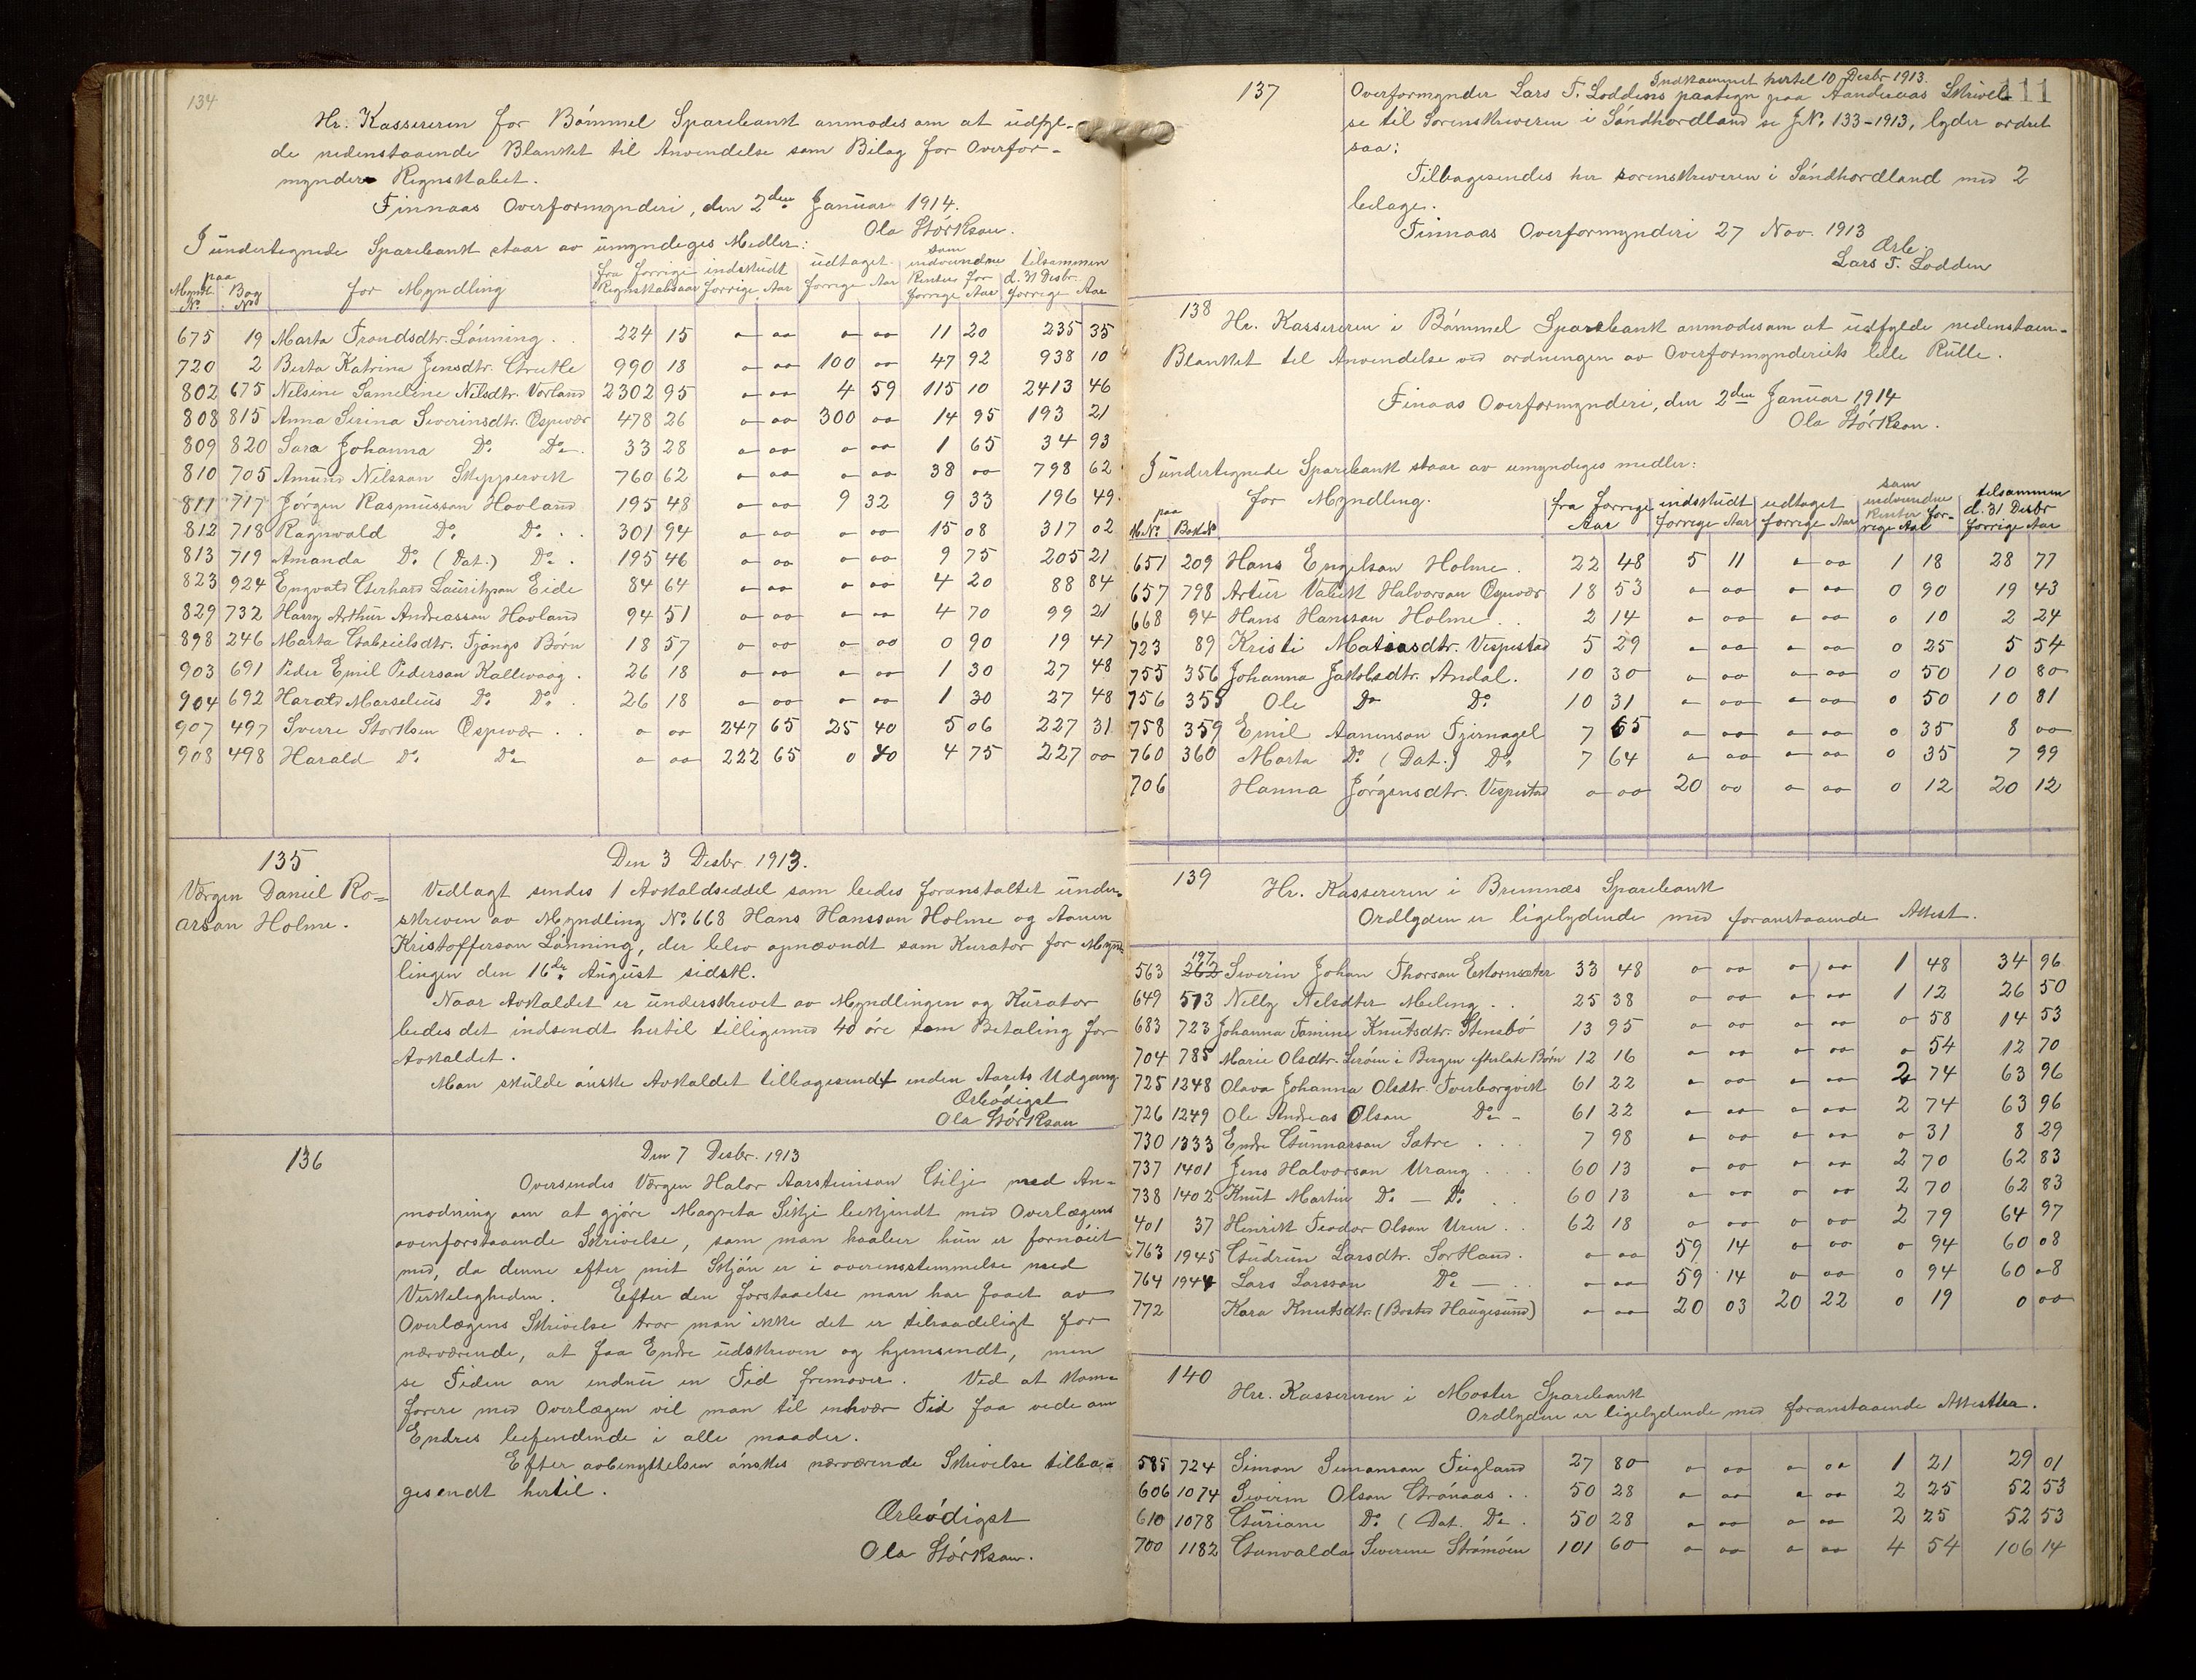 134
Hr. Kassereren for Bømmel Sparebank anmodes om at udfyl-
de nedenstaaende Blanket til Anvendelse som Bilag for Overfor-
mynder Regnskabet.
Finnaas Overformynderi, den 2den Januar 1914.
Ola Størkson.
I undertegnede Sparebank staar av umyndiges Medler:
Myndl. No. paa Bog No for Myndling fra forrige Regnskabsaar indskudt forrige Aar udtaget forrige Aar som indvundne Renter for forrige Aar tilsammen d. 31 Desbr. forrige Aar
675 19 Marta Trondsdtr. Lønning . 224 15 o oo o oo 11 20 235 35
720 2 Berta Katrina Jensdtr. 990 18 o oo 100 oo 47 92 938 10
802 675 Nilsine Sameline Nilsdtr. Vorland 2302 95 o oo 4 59 115 10 2413 46
808 815 Anna Serina Severinsdtr. Espevær 478 26 o oo 300 oo 14 95 193 21
809 820 Sara Johanna Do Do. 33 28 o oo o oo 1 65 34 93
810 705 Amund Nilsson Skippervik 760 62 o oo o oo 38 oo 798 62
811 717 Jørgen Rasmusson Hovland 195 48 o oo 9 32 9 33 196 49.
812 718 Ragnvald Do Do. . 301 94 o oo o oo 15 08 317 02
813 719 Amanda Do (Dat.) Do. 195 46 o oo o oo 9 75 205 21
823 924 Engvald Gerhard Lauritzson Eide 84 64 o oo o oo 4 20 88 84
829 732 Harry Arthur Andreasson Hovland 94 51 o oo o oo 4 70 99 21
898 246 Marta Gabrielsdtr. Tjongs Børn 18 57 o oo o oo 0 90 19 47
903 691 Peder Emil Pederson Kallevaag . 26 18 o oo o oo 1 30 27 48
904 692 Harald Marselius Do Do. 26 18 o oo o oo 1 30 27 48
907 497 Sverre Storksen Espevær . . o oo 247 65 25 40 5 06 227 31
908 498 Harald Do Do o oo 222 65 0 40 4 75 227 oo
135
Værgen Daniel Ro-
arson Holme.
Den 3 Desbr. 1913.
Vedlagt sendes 1 Avkaldseddel som bedes foranstaltet under-
skreven av Myndling No. 668 Hans Hansson Holme og Aanen
Kristofferson Lønning, der blev opnævndt som Kurator for Mynd-
lingen den 16de August sidstl.
Naar Avkaldet er underskrevet av Myndlingen og Kurator
bedes det indsendt hertil tilligemed 40 øre som Betaling for
Avkaldet.
Man skulde ønske Avkaldet tilbagesendt enden Aarets Udgang
Ærbødigst
Ola Størkson
136
Den 7 Desbr. 1913
Oversendes Værgen Halvor Aarsteinson Gilje med An-
modning om at gjøre Magreta bekjendt med Overlægens
ovenforstaaende Skrivelse, som man haaber hun er fornøiet
med, da denne efter mit Skjøn er i overensstemmelse med
Verkeligheden. Efter den forstaaelse man har faaet av
Overlægens Skrivelse tror man ikke det er tilraadeligt for
nærværende, at faa Endre udskreven og hjemsendt, men
se Tiden an endnu en Tid fremover. Ved at kom-
forere med Overlægen vil man til enhvær Tid faa vede om
Endres befendende i alle maader.
Efter avbenyttelsen ønskes nærværende Skrivelse tilba-
gesendt hertil.
Ærbødigst
Ola Størkson.
111
137
Indkommet hertil 10 Desbr. 1913.
Overformynder Lars T. Loddens paategn. paa Aanderaas Skrivel-
se til Sorenskriveren i Søndhordland se J.No. 133-1913, lyder ordret
saa:
Tilbagesendes hr sorenskriveren i Søndhordland med 2
belage.
Finnaas Overformynderi 27 Nov. 1913
Ærb.
Lars T. Lodden
138
Hr. Kassereren i Bømmel Sparebank anmodes om at udfylde nedenstaaen-
Blanket til Anvendelse ved ordningen av Overformynderiets lelle Rulle.
Finaas Overformynderi, den 2den Januar 1914
Ola Størkson.
I undertegnede Sparebank staar av umyndiges medler:
M.No. paa Bok No for Myndling. fra forrige Aar indskudt forrige Aar udtaget forrige Aar som indvundne Renter for- rige Aar tilsammen d. 31 Desbr forrige Aar
651 209 Hans Engelson Holme . 22 48 5 11 o oo 1 18 28 77
657 798 Artur Valent Halvorson Espevær 18 53 o oo o oo 0 90 19 43
668 94 Hans Hansson Holme . . 2 14 o oo o oo 0 10 2 24
723 89 Kristi Matiasdtr. Vespestad 5 29 o oo o oo 0 25 5 54
755 356 Johanna Jakobsdtr. Andal. 10 30 o oo o oo 0 50 10 80
756 355 Ole Do Do 10 31 o oo o oo 0 50 10 81
758 359 Emil Aanenson Fjernagel 7 65 o oo o oo 0 35 8 oo
760 360 Marta Do (Dat.) Do. 7 64 o oo o oo 0 35 7 99
706 Hanna Jørgensdtr. Vespestad o oo 20 oo o oo 0 12 20 12
139
Hr. Kassereren i Bremnæs Sparebank
Ordlyden er ligelydende med foranstaaende Attest.
563 262 197 Severin Johan Thorson Ekornsæter 33 48 o oo o oo 1 48 34 96
649 573 Nelly Nilsdter Meling . . 25 38 o oo o oo 1 12 26 50
683 723 Johanna Tomine Knutsdtr. Stensbø 13 95 o oo o oo o 58 14 53
704 785 Marie Olsdtr. Lerøen i Bergen efterlate Børn 12 16 o oo o oo o 54 12 70
725 1248 Olava Johanna Olsdtr. Tverborgvik 61 22 o oo o oo 2 74 63 96
726 1249 Ole Andreas Olson Do - 61 22 o oo o oo 2 74 63 96
730 1333 Endre Gunnarson Sætre . . . 7 98 o oo o oo o 31 8 29
737 1401 Jens Halvorson Urang . . . 60 13 o oo o oo 2 70 62 83
738 1402 Knut Martin Do — Do . 60 13 o oo o oo 2 70 62 83
401 37 Henrik Teodor Olson Uren . . 62 18 o oo o oo 2 79 64 97
763 1945 Gudrun Larsdtr. Sortland . o oo 59 14 o oo o 94 60 08
764 1944 Lars Larsson Do — . . o oo 59 14 o oo 0 94 60 08
772 Kara Knutsdtr. (Bosted Haugesund) o oo 20 03 20 22 0 19 0 oo
140
Hrr. Kassereren i Moster Sparebank
Ordlyden er ligelydende med foranstaaende Attester.
585 724 Simon Simonson Fugland 27 80 o oo o oo 1 21 29 01
606 1074 Severin Olson Grønaas . . 50 28 o oo o oo 2 25 52 53
610 1078 Guriane Do (Dat. Do . 50 28 o oo o oo 2 25 52 53
700 1182 Gunvalda Severine Strømøen 101 60 o oo o oo 4 54 106 14